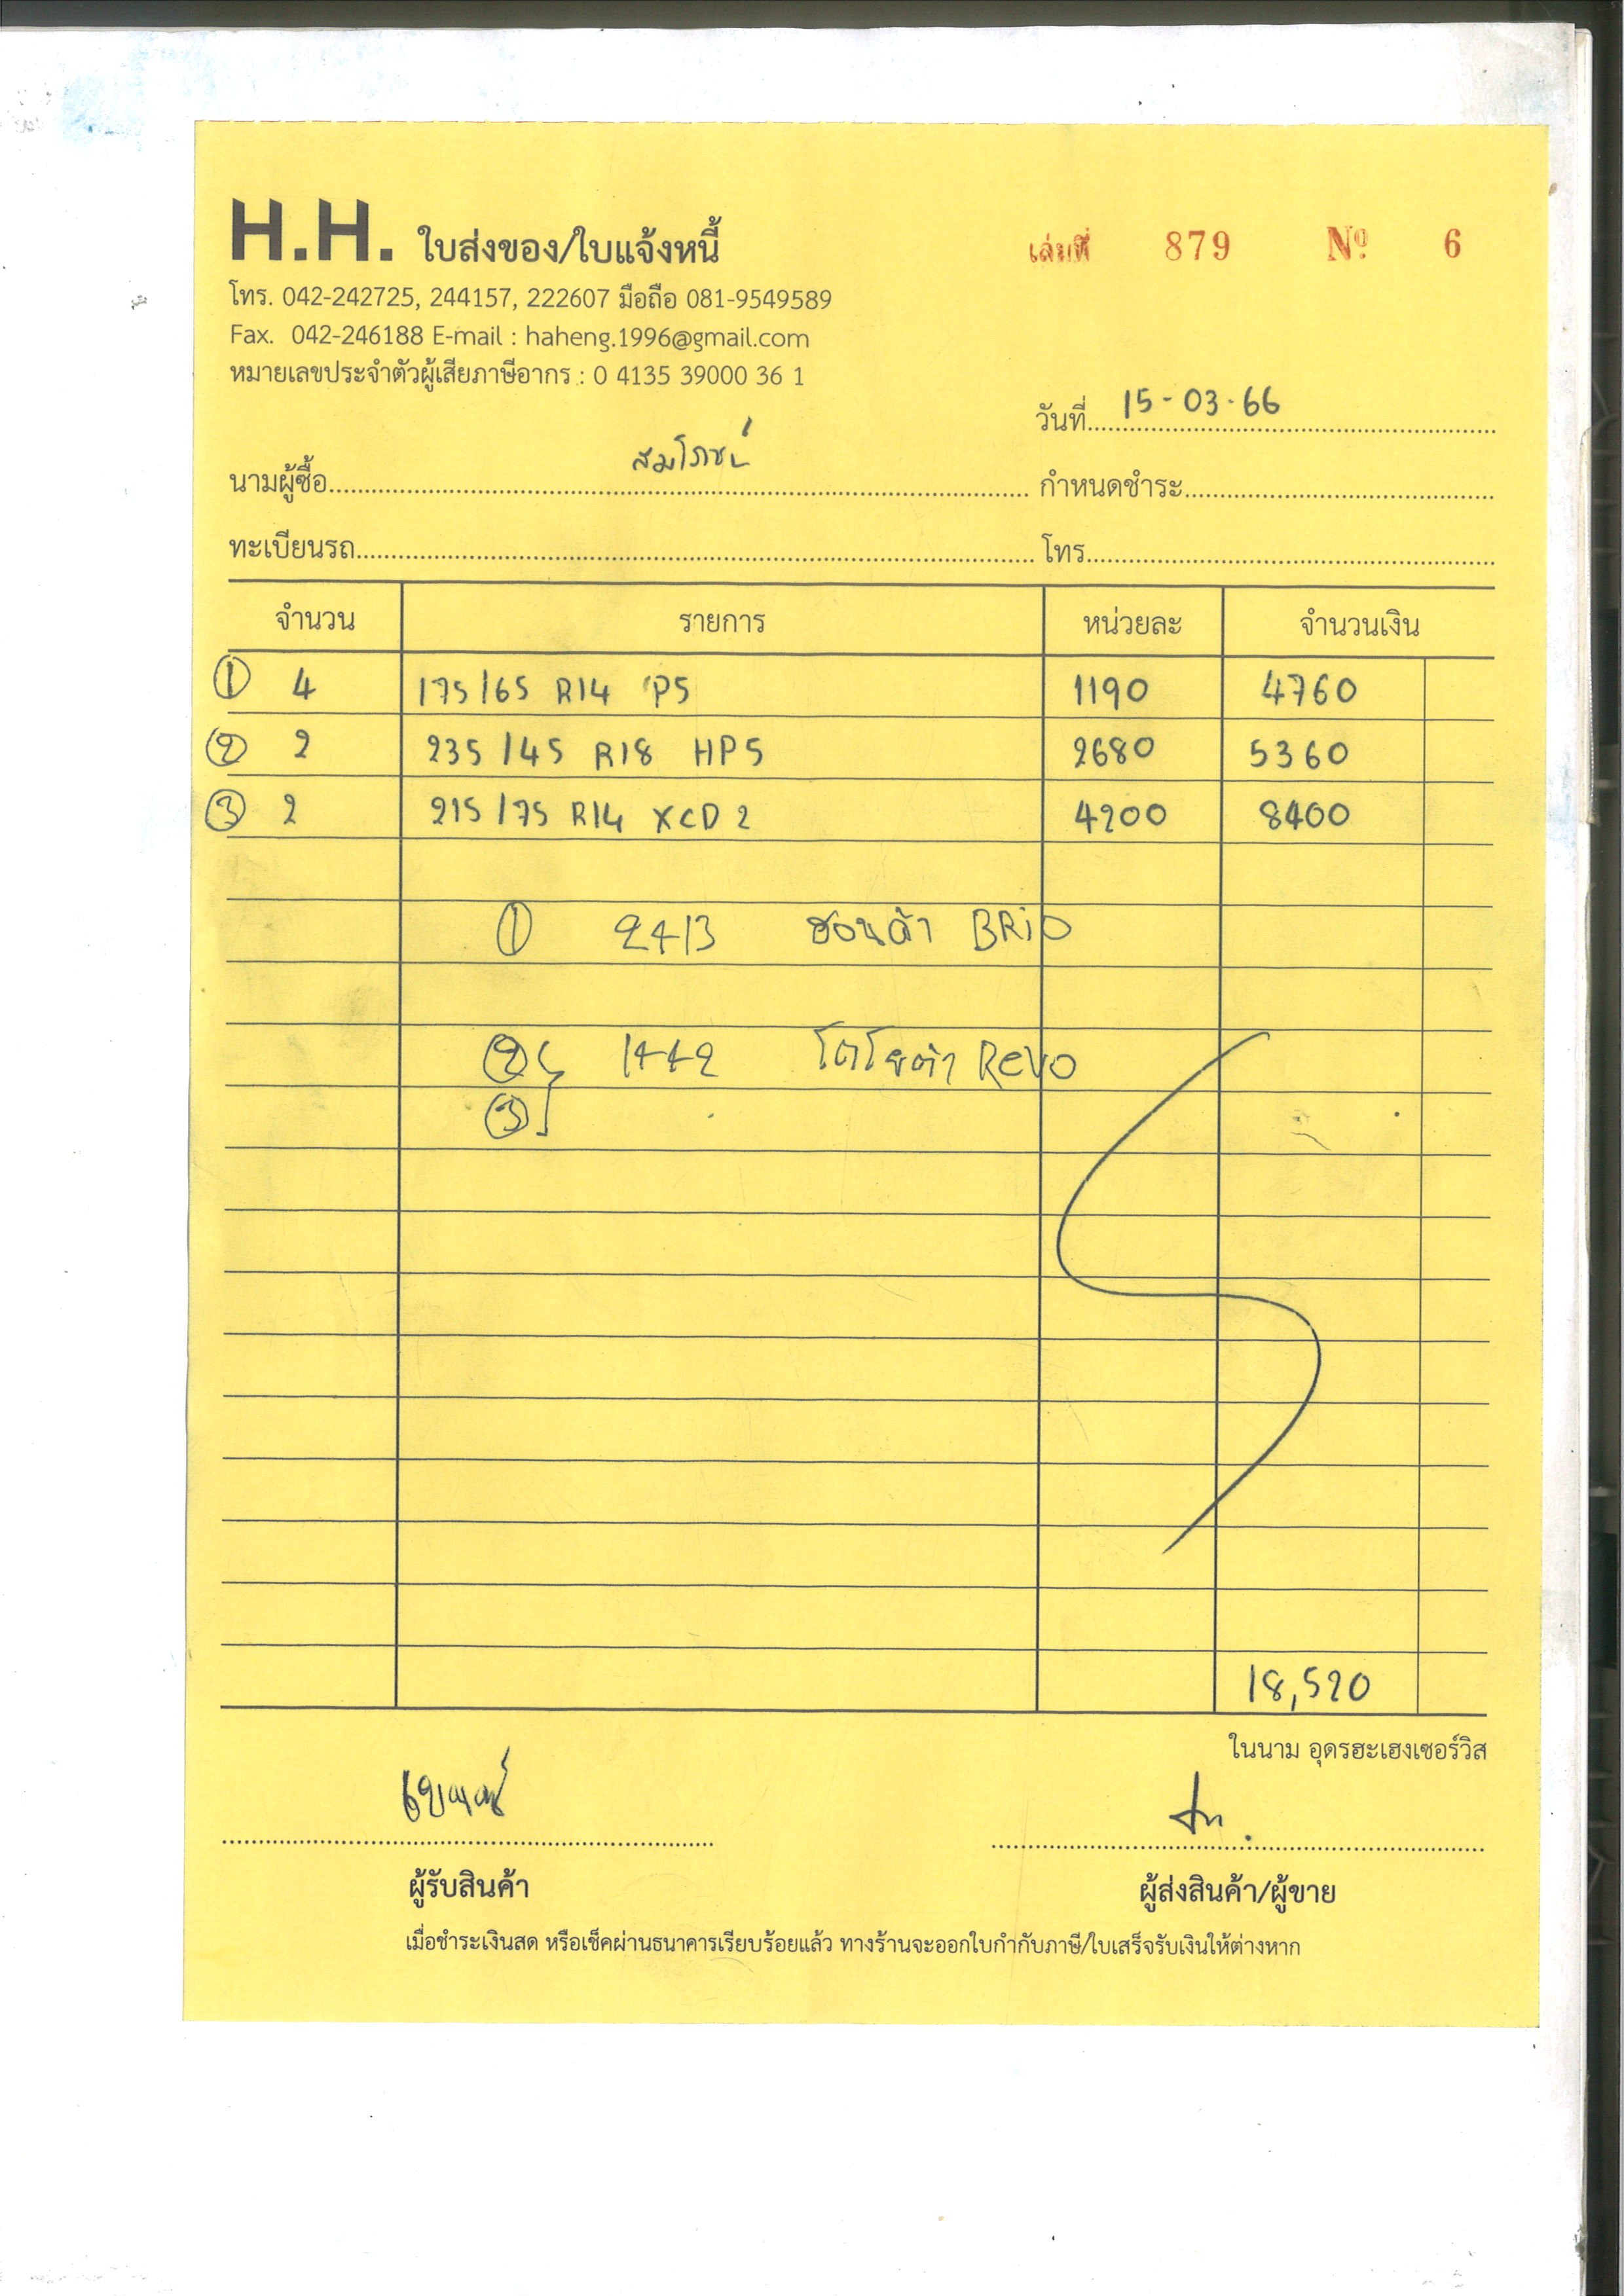 H.H. ใบส่งของ/ใบแจ้งหนี้ เล่มที่ 879 Nº 6
โทร. 042-242725, 244157, 222607 มือถือ 081-9549589
Fax. 042-246188 E-mail : haheng.1996@gmail.com
หมายเลขประจำตัวผู้เสียภาษีอากร : 0 4135 39000 36 1
วันที่ 15-03-66
นามผู้ซื้อ สมโภชน์ กำหนดชำระ
ทะเบียนรถ โทร
จำนวน รายการ หน่วยละ จำนวนเงิน
① 4 175/65 R14 P5 1190 4760
② 2 235/45 R18 HP5 2680 5360
③ 2 215/75 R14 XCD2 4200 8400
① 2413 ฮอนด้า BRiO
② 1442 โตโยต้า ReVO
③
18,520
ในนาม อุดรฮะเฮงเซอร์วิส
ผู้รับสินค้า ผู้ส่งสินค้า/ผู้ขาย
เมื่อชำระเงินสด หรือเช็คผ่านธนาคารเรียบร้อยแล้ว ทางร้านจะออกใบกำกับภาษี/ใบเสร็จรับเงินให้ต่างหาก